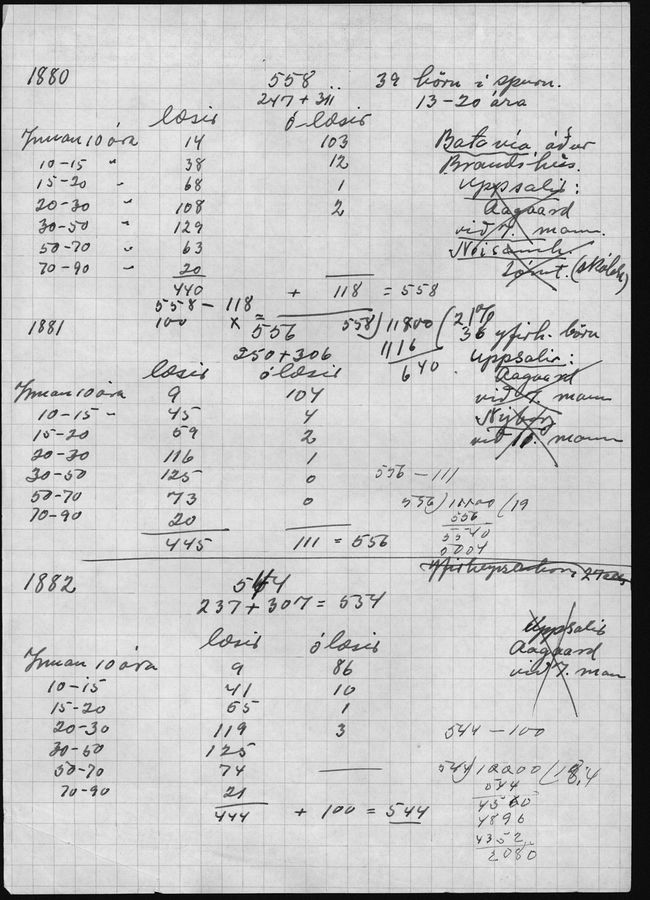 1880 558 39 börn í spurn.
247 + 311 13-20 ára
læsir ólæsir
Innan 10 ára 14 103 Batavía, áður
10-15 " 38 12 Brandshús.
15-20 " 68 1 Uppsalir:
20-30 " 108 2 Aagaard
30-50 " 129 við 7. mann.
50-70 " 63
70-90 " 20
440 + 118 = 558
558 - 118
100 x =
1881 556 558) 11800 (21%
250 + 306 1116 36 yfirh. börn
640. Uppsalir:
læsir ólæsir Aagaard
Innan 10 ára 9 104 við 7. mann
10-15 " 45 4 Nýborg
15-20 59 2 við 10. mann
20-30 116 1
30-50 125 0 556 - 111
50-70 73 0 556) 11100 (19
70-90 20 556
445 111 = 556 5540
5004
1882 544
237 + 307 = 534
Uppsalir
læsir ólæsir Aagaard
Innan 10 ára 9 86 við 7. mann
10-15 41 10
15-20 55 1
20-30 119 3 544 - 100
30-50 125
50-70 74 544) 10000 (18,4
70-90 21 544
444 + 100 = 544 4560
4896
4352
2080